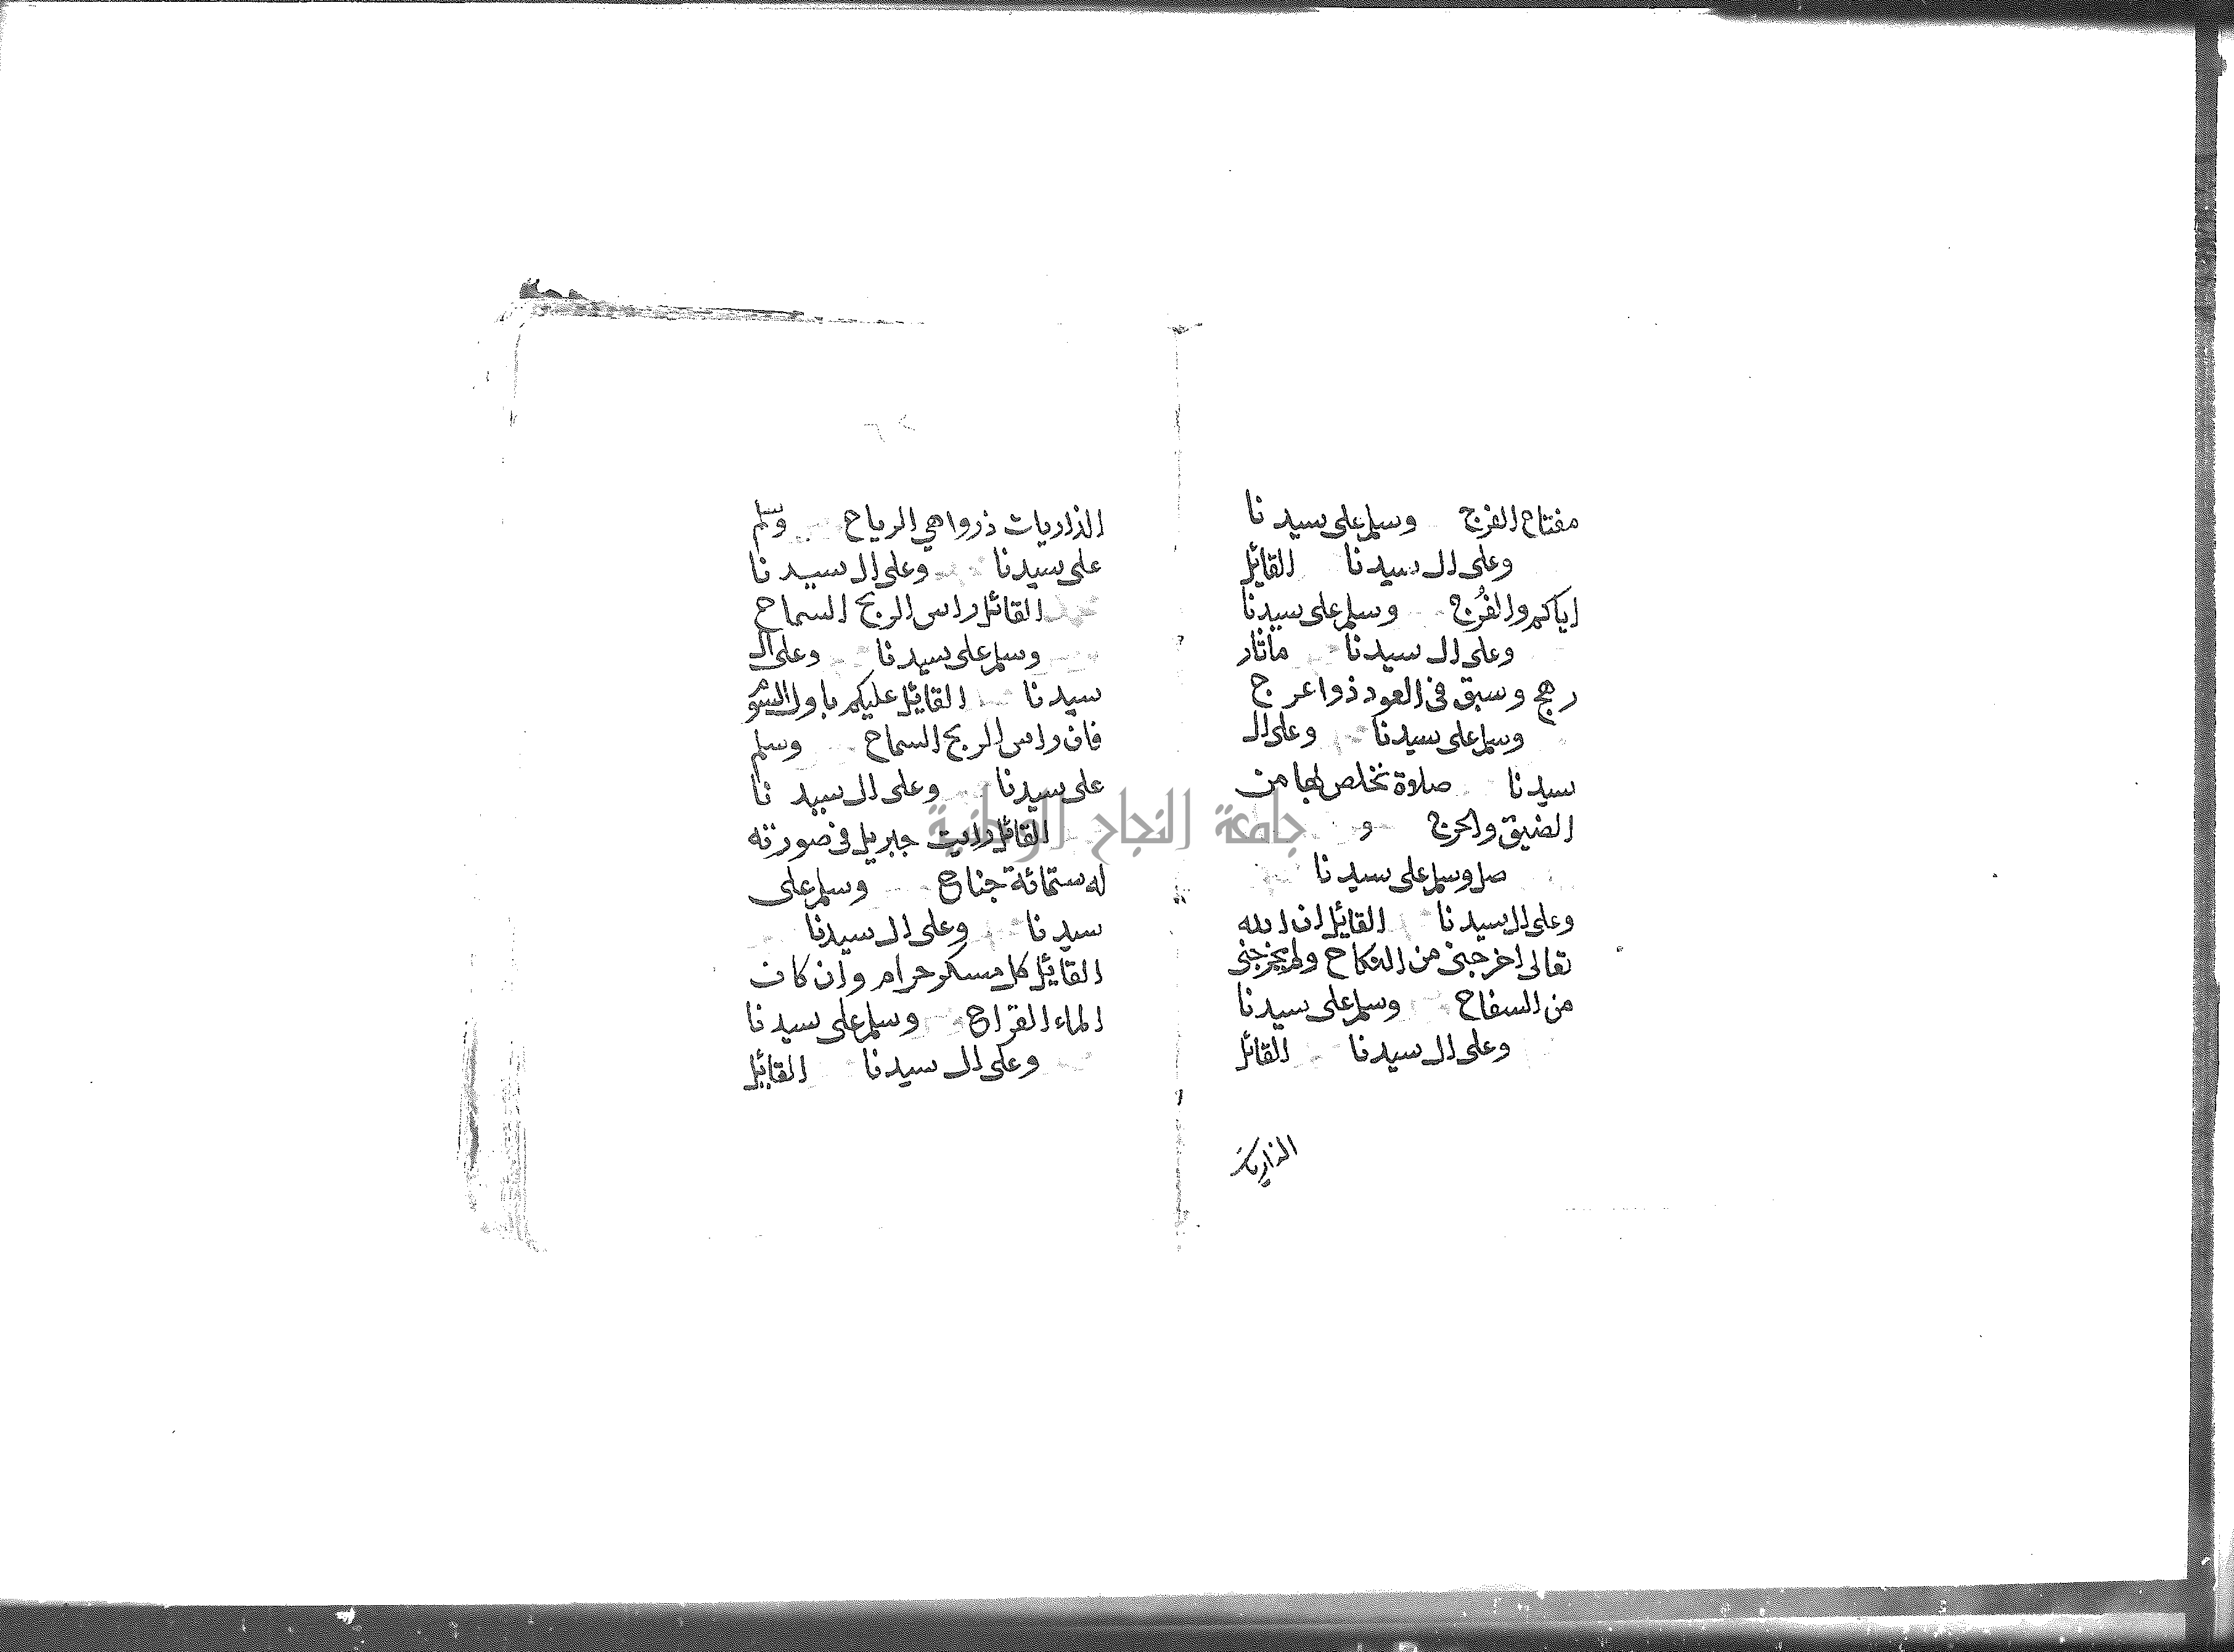 مفتاح الفرج وسلم على سيدنا
وعلى ال سيدنا القايل
اياكم والفُرج وسلم على سيدنا
وعلى ال سيدنا ماثار
رهج وسبق فى العود ذوا عرج
وسلم على سيدنا وعلى ال
سيدنا صلاة نخلص بها من
الضيق والحرج و
صل وسلم على سيدنا
وعلى ال سيدنا القايل ان الله
تعالى اخرجنى من النكاح ولم يخرجنى
من السفاح وسلم على سيدنا
وعلى ال سيدنا القائل
الذاريات
الذاريات ذروا هي الرياح وسلم
على سيدنا وعلى ال سيدنا
القائل راس الربح السماح
وسلم على سيدنا وعلى ال
سيدنا القايل عليكم باول السوم
فان راس الربح السماح وسلم
على سيدنا وعلى ال سيدنا
القائل رايت جبريل فى صورته
له ستمائة جناح وسلم على
سيدنا وعلى ال سيدنا
القايل كل مسكر حرام وان كان
الماء القراح وسلم على سيدنا
وعلى ال سيدنا القايل
جامعة النجاح الوطنية